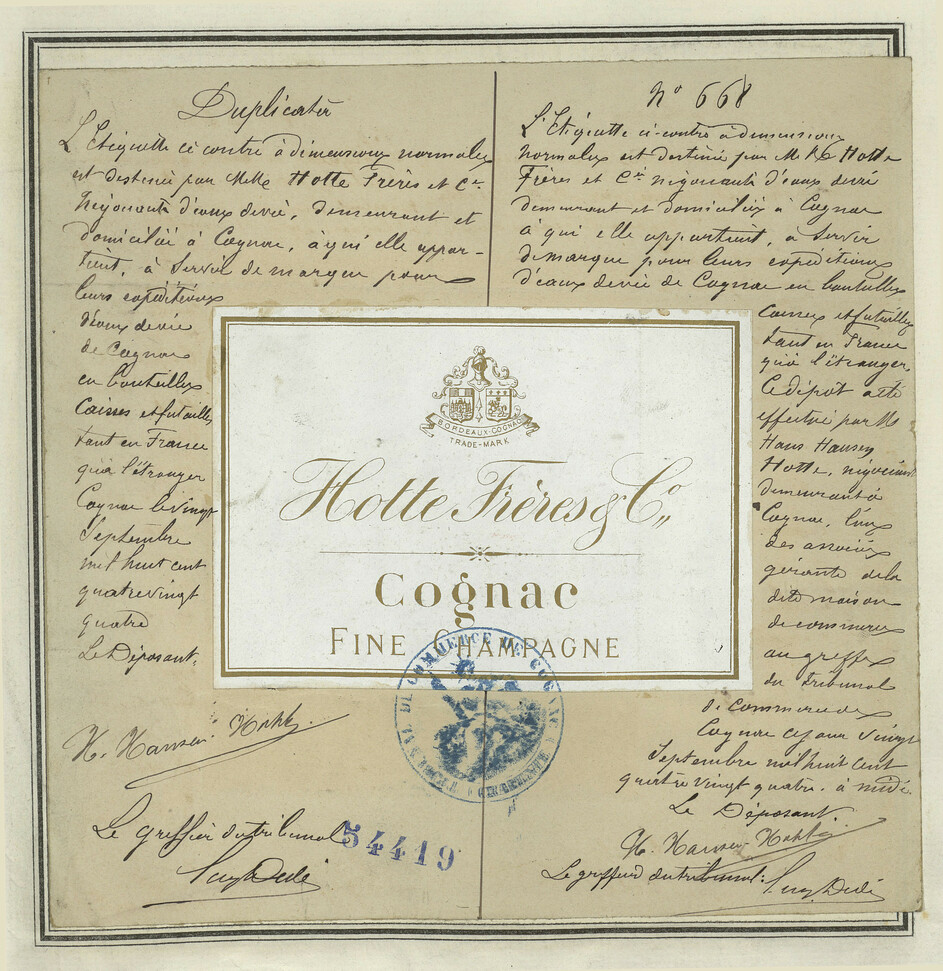 Duplicata
L'Etiquette ci contre à dimensions normales
est destinée par MMrs Hotte Frères et Cie
Négociants d'eaux devie, demeurant et
domiciliés à Cognac, à qui elle appar-
tient, à Servir de marque pour
leurs expéditions
d'eaux devie
de Cognac
en bouteilles
Caisses et futailles
tant en France
qu'à l'étranger
Cognac le vingt
Septembre
mil huit cent
quatrevingt
quatre
Le Déposant.
H. Hansen Hotte
Le greffier du tribunal
54419
No 668
L'Etiquette ci-contre à dimensions
normales est destinée par Hotte
Frères et Cie négociants d'eaux devie
demeurant et domiciliés à Cognac
à qui elle appartient, à Servir
de marque pour leurs expéditions
d'eaux devie de Cognac en bouteilles
Caisses et futailles
tant en France
qu'à l'étranger
Ce dépôt a été
effectué par Mr
Hans Hansen
Hotte, négociant
demeurant à
Cognac, l'un
des associés
gérants dela
dite maison
de commerce
au greffe
du tribunal
de commerce de
Cognac ce jour vingt
Septembre mil huit cent
quatre vingt quatre à midi.
Le Déposant.
H. Hansen Hotte
Le greffier du tribunal:
BORDEAUX-COGNAC
TRADE-MARK
Hotte Frères & Co
Cognac
FINE CHAMPAGNE
TRIBUNAL DE COMMERCE DE COGNAC